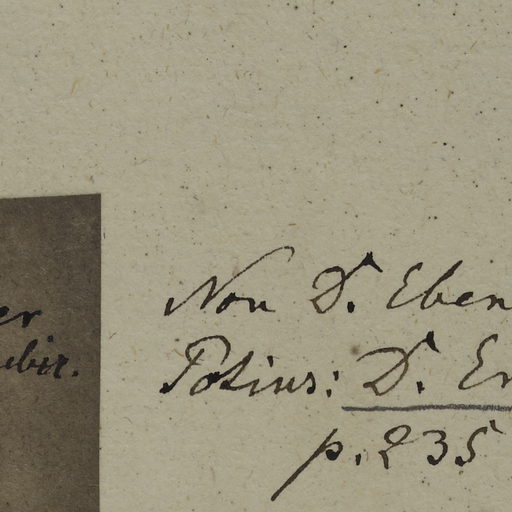 er
ubir.
Non Dr. Eben
Potius: Dr. Er
p. 235